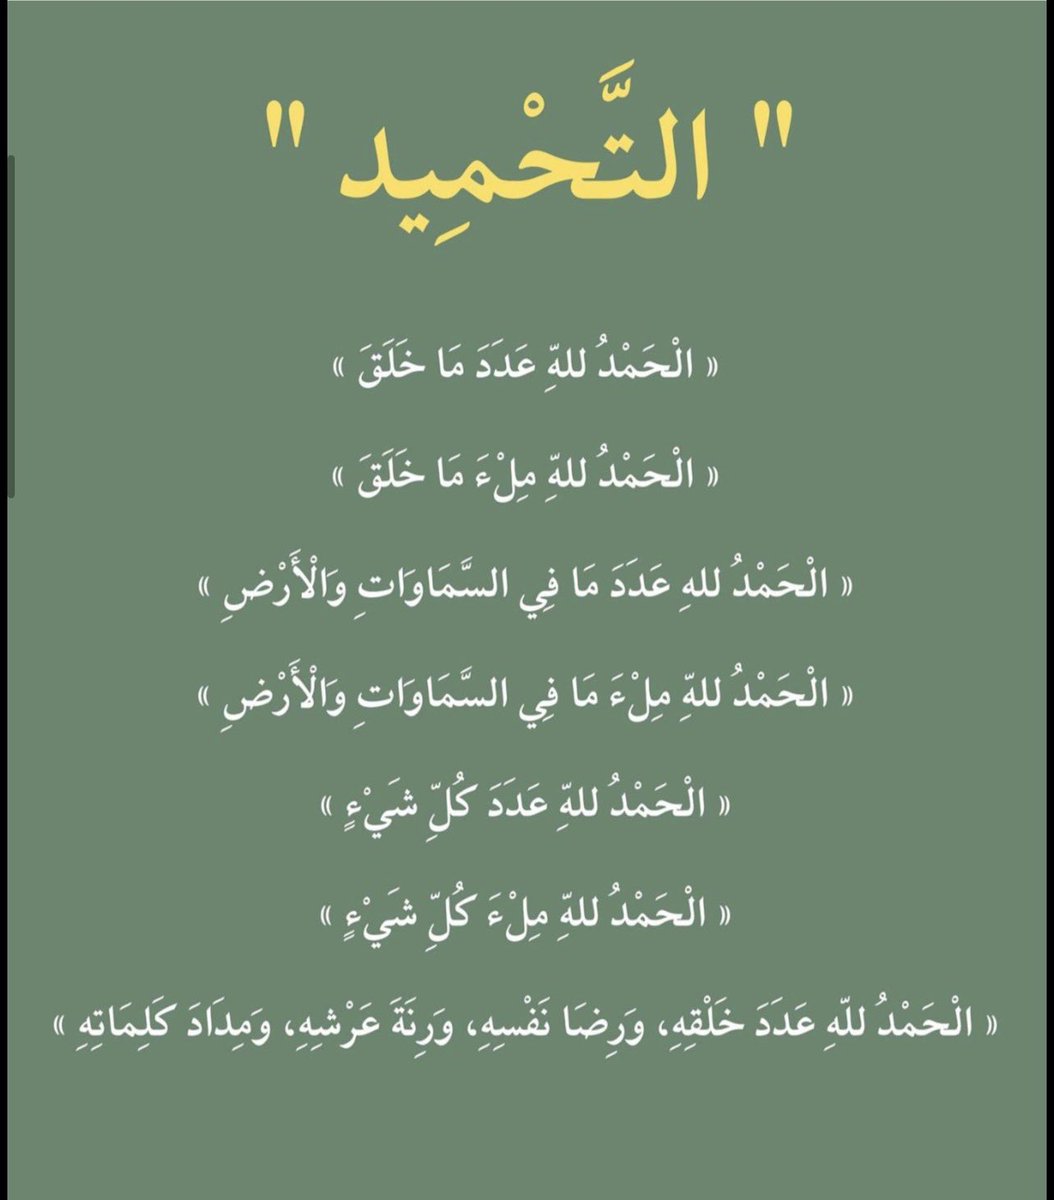 " التَّحْمِيد "
« الْحَمْدُ للهِ عَدَدَ مَا خَلَقَ »
« الْحَمْدُ للهِ مِلْءَ مَا خَلَقَ »
« الْحَمْدُ للهِ عَدَدَ مَا فِي السَّمَاوَاتِ وَالْأَرْضِ »
« الْحَمْدُ للهِ مِلْءَ مَا فِي السَّمَاوَاتِ وَالْأَرْضِ »
« الْحَمْدُ للهِ عَدَدَ كُلِّ شَيْءٍ »
« الْحَمْدُ للهِ مِلْءَ كُلِّ شَيْءٍ »
« الْحَمْدُ للّهِ عَدَدَ خَلْقِهِ، وَرِضَا نَفْسِهِ، وَرِنَةَ عَرْشِهِ، وَمِدَادَ كَلِمَاتِهِ »